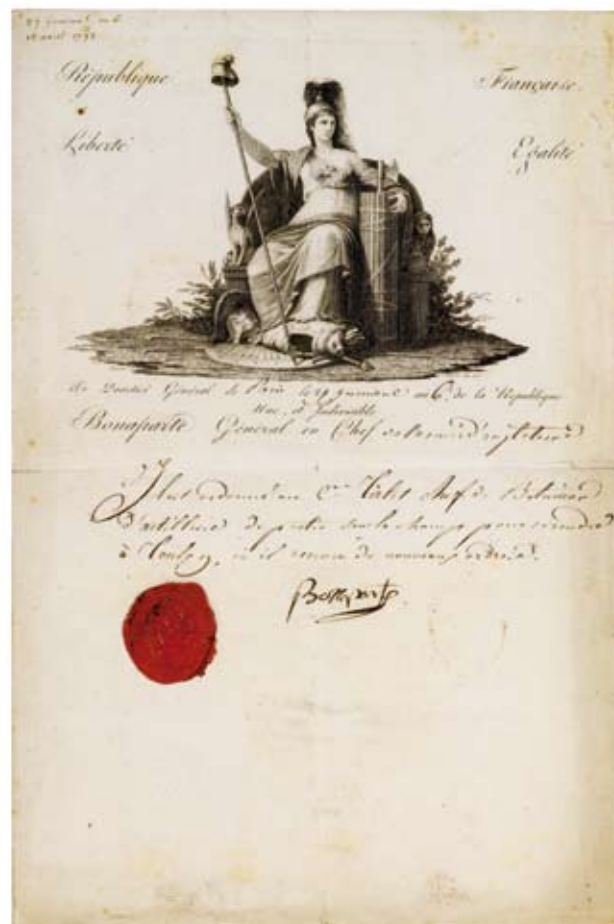 29 germinal an 6
18 avril 1798
République Française
Liberté Egalité
Au Quartier Général de Paris le 29 germinal an 6.e de la République
Une, et Indivisible
Bonaparte Général en Chef de l'armée d'angleterre
Il est ordonné au C.en Chef de Bataillon
d'artillerie de partir sur le champ pour se rendre
à Toulon, où il de nouveaux ordres.
Bonaparte